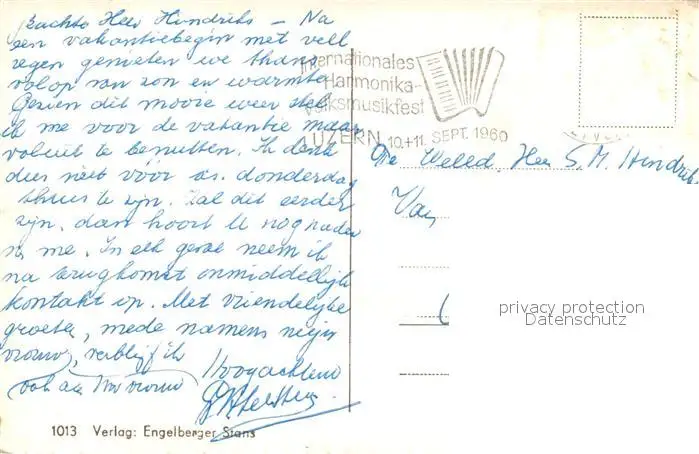 Geachte Heer Hendriks – Na
een vakantiebegin met veel
regen genieten we thans
volop van zon en warmte
Gezien dit mooie weer stel
ik me voor de vakantie maar
voluit te benutten. Ik denk
dus niet vóór a.s. donderdag
thuis te zijn. Zal dit eerder
zijn, dan hoort U nog nader
van me. In elk geval neem ik
na terugkomst onmiddellijk
kontakt op. Met vriendelijke
groeten, mede namens mijn
vrouw, verblijf ik
ook aan Mevrouw Hoogachtend
1013 Verlag: Engelberger Stans
Internationales
Harmonika-
Volksmusikfest
LUZERN 10.+11. SEPT. 1960
De Weled. Heer S.M. Hendriks
Van
privacy protection
Datenschutz